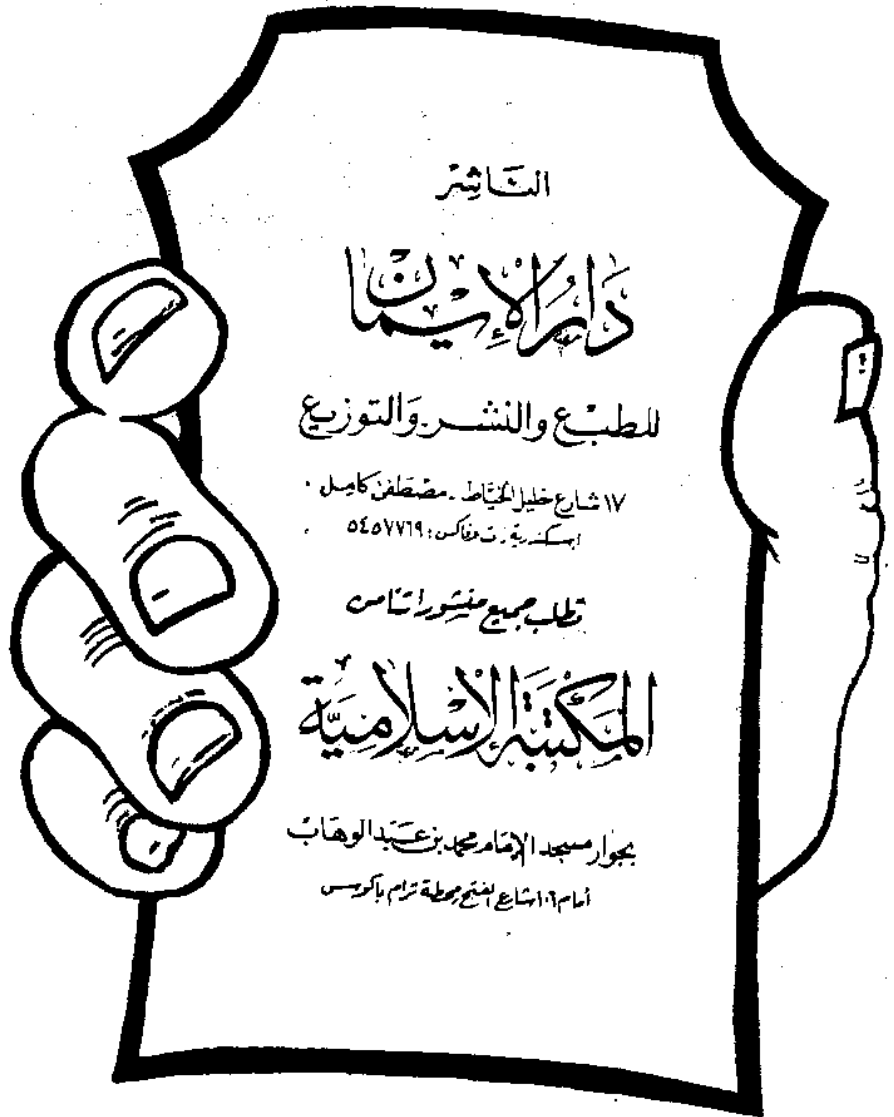 الناشر
دار الإيمان
للطبع والنشر والتوزيع
١٧ شارع خليل الخياط - مصطفى كامل .
اسكندرية : ت وفاكس : ٥٤٥٧٧٦٩ .
تطلب جميع منشوراتنا من
المكتبة الإسلامية
بجوار مسجد الإمام محمد بن عبد الوهاب
أمام ١٠٦ شارع الفتح محطة ترام باكوس